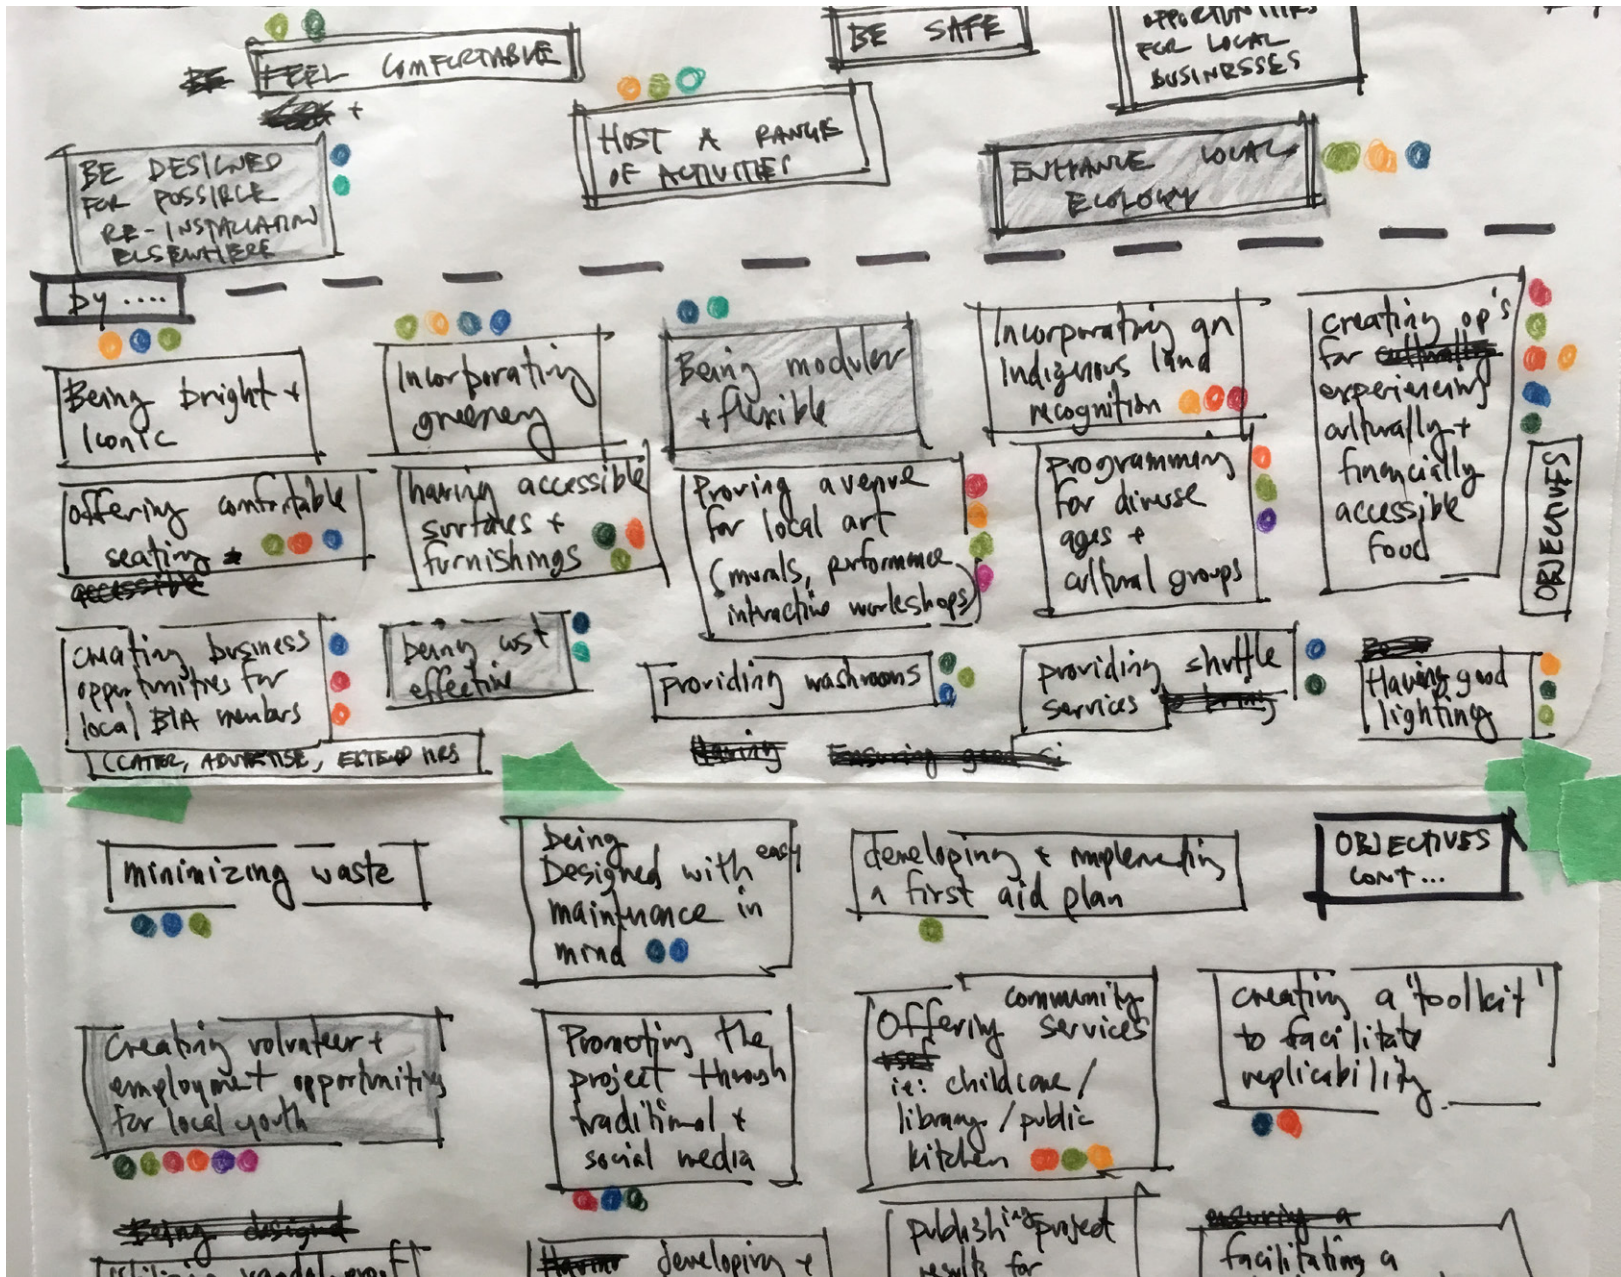 BE SAFE
OPPORTUNITIES
FOR LOCAL
BUSINESSES
BE FEEL COMFORTABLE
+
HOST A RANGE
OF ACTIVITIES
ENHANCE LOCAL
ECOLOGY
BE DESIGNED
FOR POSSIBLE
RE-INSTALLATION
ELSEWHERE
by ....
Being bright +
Iconic
Incorporating
greenery
Being moduler
+ flexible
Incorporating an
Indigenous land
recognition
creating op's
for culturally
experiencing
culturally +
financially
accessible
food
OBJECTIVES
offering comfortable
seating
accessible
having accessible
surfaces +
furnishings
Proving avenue
for local art
(murals, performance
interactive workshops)
programming
for diverse
ages +
cultural groups
creating business
opportunities for
local BIA members
(CATER, ADVERTISE, EXTEND HRS
being cost
effective
providing washrooms
providing shuttle
services
Having good
lighting
Having
Ensuring good
minimizing waste
being
Designed with easy
maintenance in
mind
developing + implementing
a first aid plan
OBJECTIVES
cont...
Creating volunteer +
employment opportunities
for local youth
Promoting the
project through
traditional +
social media
community
Offering services
ie: childcare/
library/public
kitchen
creating a 'toolkit'
to facilitate
replicability
Being designed
Having developing +
publishing project
results for
ensuring a
facilitating a